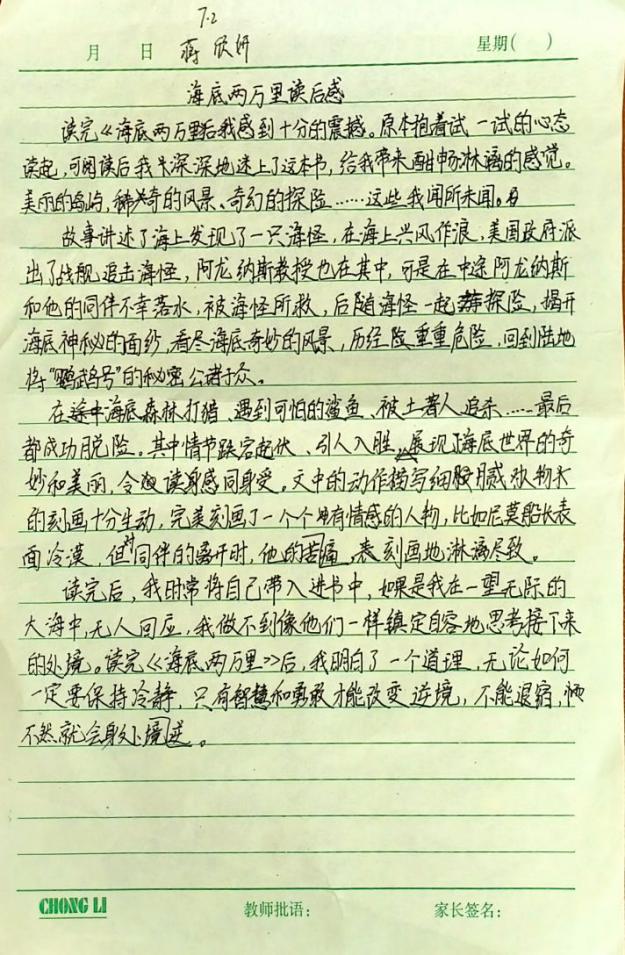 7.2
月 日 蒋欣妍 星期( )
海底两万里读后感
读完《海底两万里后我感到十分的震撼。原本抱着试一试的心态
读起,可阅读后我深深地迷上了这本书,给我带来酣畅淋漓的感觉。
美丽的岛屿,稀奇的风景、奇幻的探险……这些我闻所未闻。
故事讲述了海上发现了一只海怪,在海上兴风作浪,美国政府派
出了战舰追击海怪,阿龙纳斯教授也在其中,可是在中途阿龙纳斯
和他的同伴不幸落水,被海怪所救,后随海怪一起探险,揭开
海底神秘的面纱,看尽海底奇妙的风景,历经险重重危险,回到陆地
将“鹦鹉号”的秘密公诸于众。
在海底森林打猎、遇到可怕的鲨鱼、被土著人追杀……最后
都成功脱险。其中情节跌宕起伏、引人入胜,展现了海底世界的奇
妙和美丽,令读身感同身受。文中的动作描写细腻对人物
的刻画十分生动,完美刻画了一个个有情感的人物,比如尼莫船长表
面冷漠,但对同伴的离开时,他的苦痛,表刻画地淋漓尽致。
读完后,我时常将自己带入进书中,如果是我在一望无际的
大海中,无人回应,我做不到像他们一样镇定自容地思考接下来
的处境。读完《海底两万里》后,我明白了一个道理,无论如何
一定要保持冷静,只有智慧和勇敢才能改变逆境,不能退缩,
不然就会身处境逆。
CHONG LI 教师批语: 家长签名: